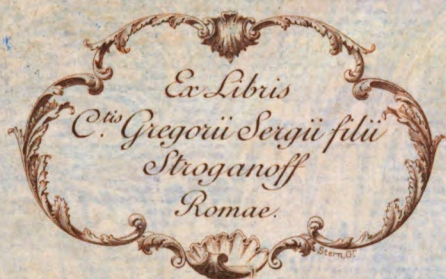 Ex Libris
C.tis Gregorii Sergii filii
Stroganoff
Romae.
Stern, Gr.